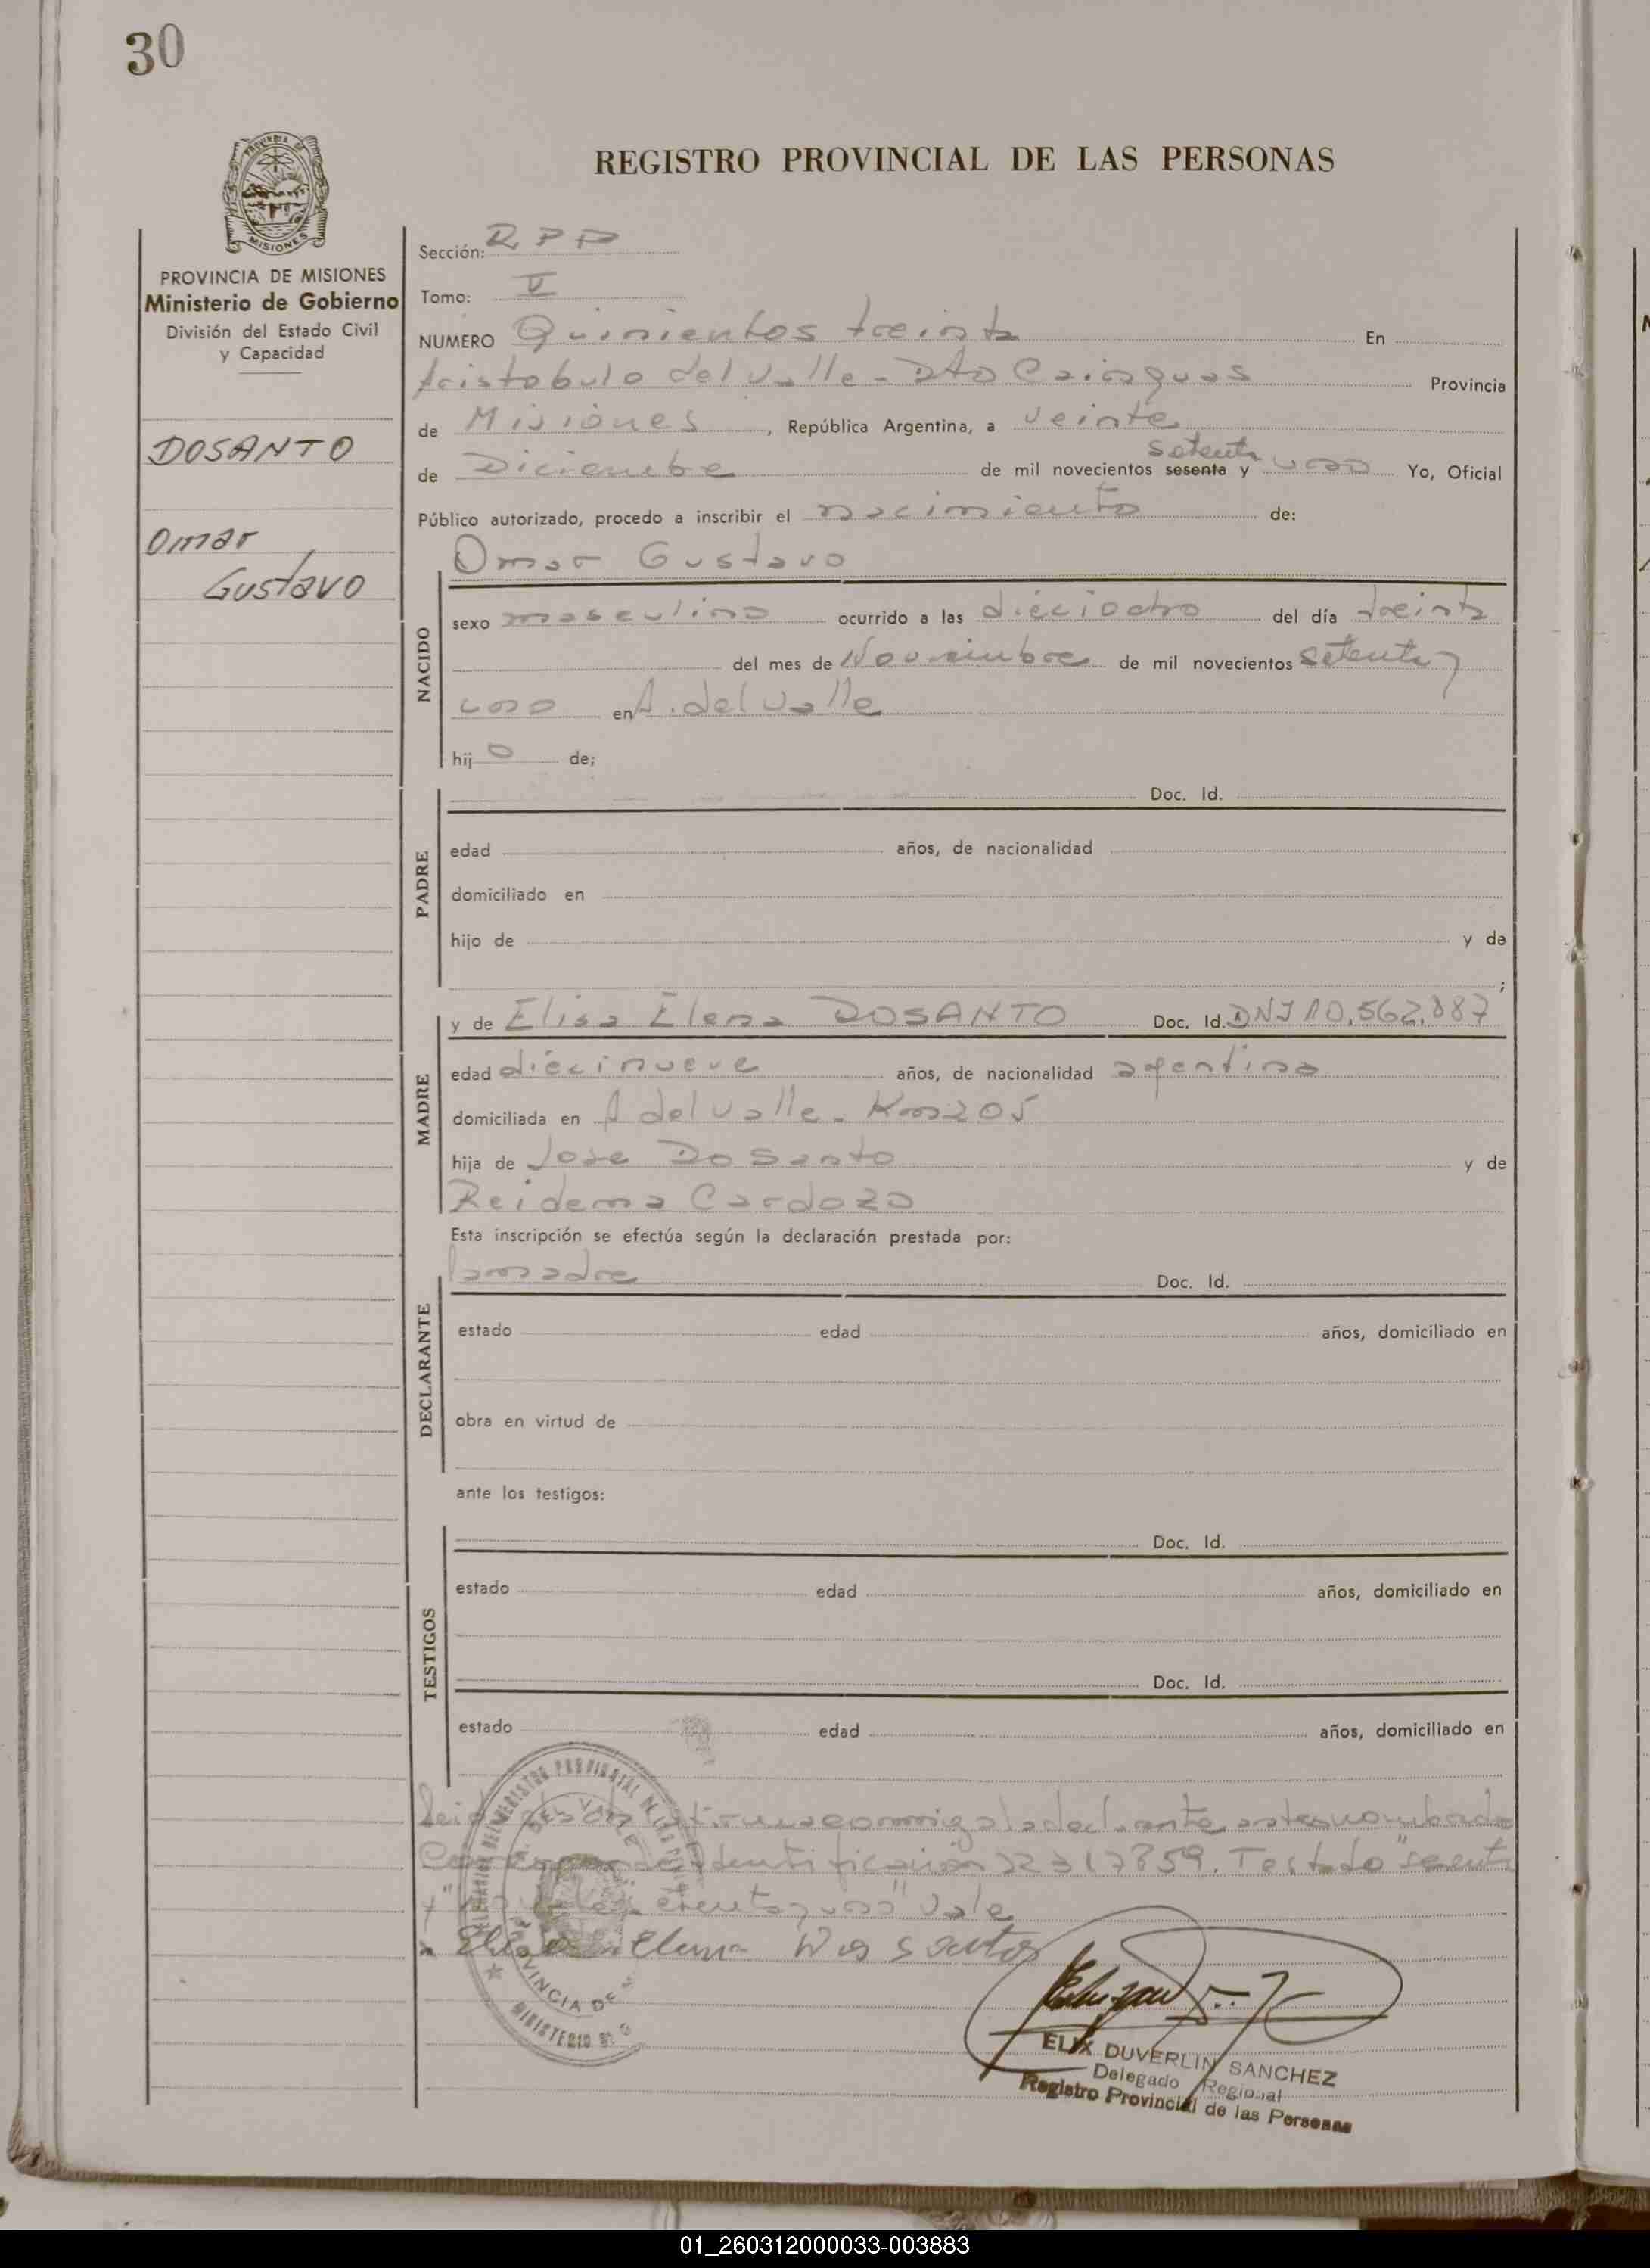 30
REGISTRO PROVINCIAL DE LAS PERSONAS
PROVINCIA DE
MISIONES
PROVINCIA DE MISIONES
Ministerio de Gobierno
División del Estado Civil
y Capacidad
DOSANTO
Omar
Gustavo
Sección: R P P
Tomo: V
NUMERO Quinientos treinta En
Aristobulo del Valle - Dto Cainguas Provincia
de Misiones, República Argentina, a veinte
setenta
de Diciembre de mil novecientos sesenta y uno Yo, Oficial
Público autorizado, procedo a inscribir el nacimiento de:
Omar Gustavo
NACIDO
sexo masculino ocurrido a las dieciocho del día treinta
del mes de Noviembre de mil novecientos setenta y
uno en A. del Valle
hijo de;
PADRE
Doc. Id.
edad años, de nacionalidad
domiciliado en
hijo de y de
;
MADRE
y de Elisa Elena DOSANTO Doc. Id. DNI 10.562.887
edad diecinueve años, de nacionalidad agentina
domiciliada en A del Valle - Km 205
hija de Jose Do Santo y de
Reidema Cardozo
Esta inscripción se efectúa según la declaración prestada por:
DECLARANTE
la madre Doc. Id.
estado edad años, domiciliado en
obra en virtud de
ante los testigos:
TESTIGOS
Doc. Id.
estado edad años, domiciliado en
Doc. Id.
estado edad años, domiciliado en
Leida firma conmigo la declarante antes nombrada
identificación 22317859. Testado "sesenta
y" setenta y uno" Vale
Elena Dos Santos
REGISTRO PROVINCIAL DE LAS
DEL VALLE
PROVINCIA DE
MINISTERIO
ELIX DUVERLIN SANCHEZ
Delegado Regional
Registro Provincial de las Personas
01_260312000033-003883